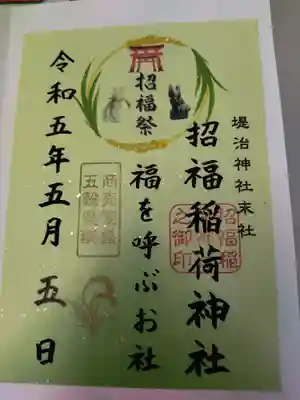 堤治神社末社
招福稲荷神社
招福稲
之御印
招福祭
福を呼ぶお社
令和五年五月五日